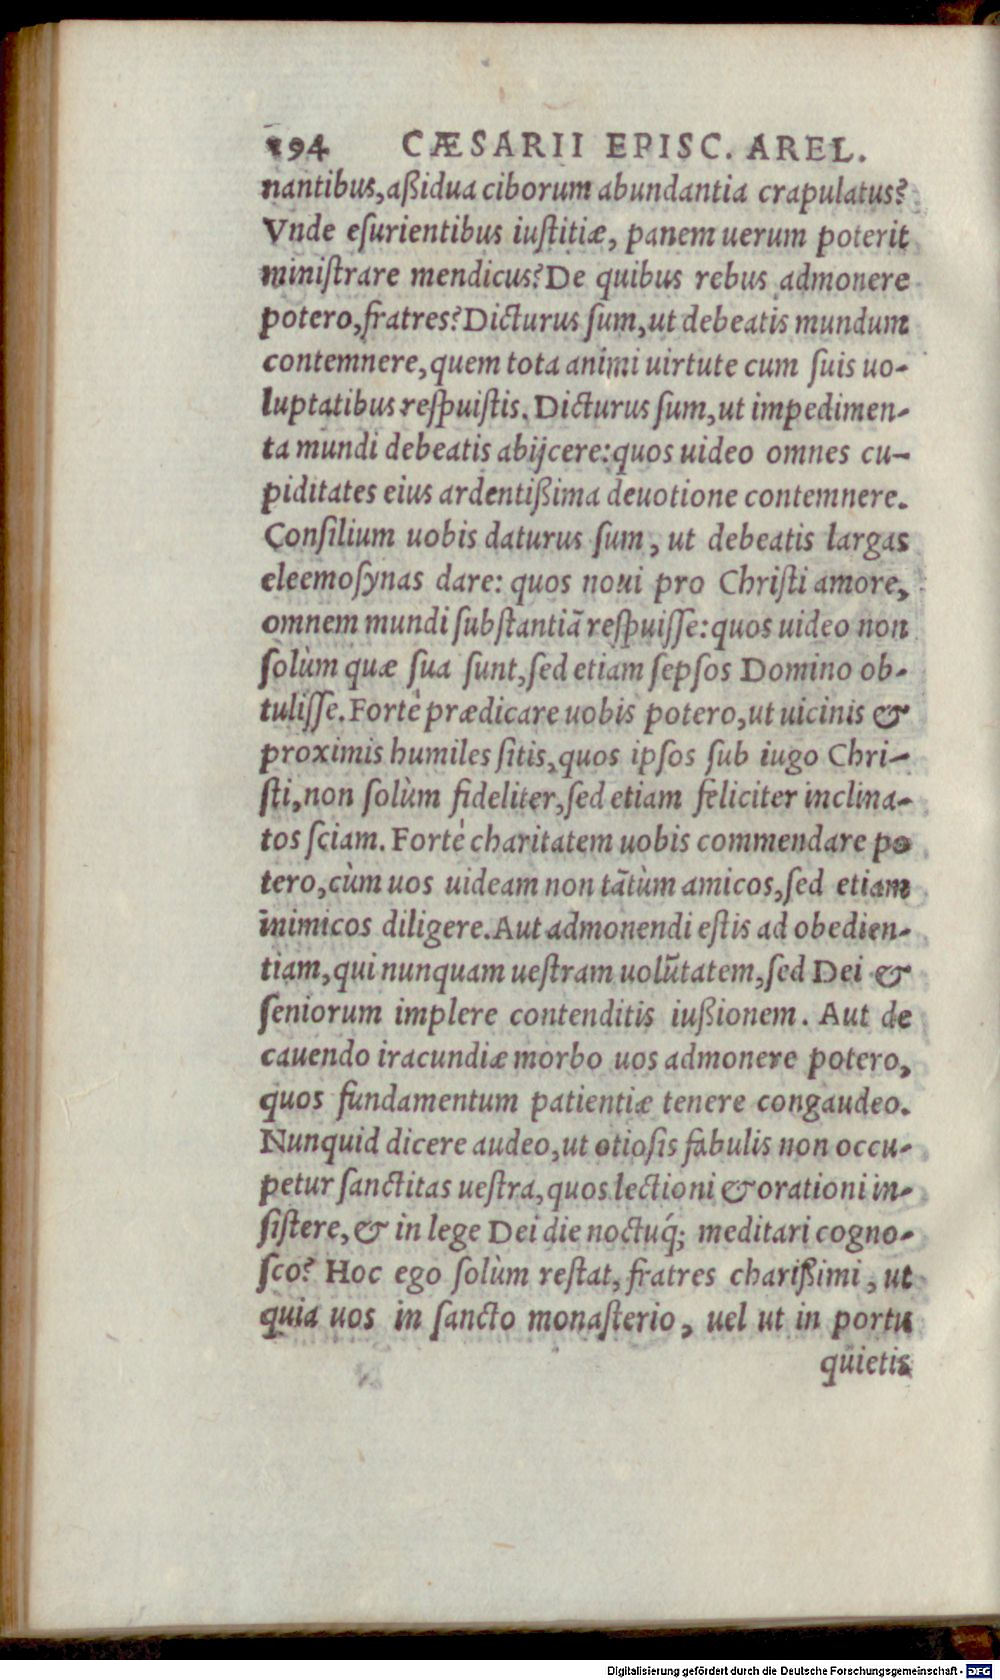 194 CÆSARII EPISC. AREL.
nantibus, aßidua ciborum abundantia crapulatus?
Vnde eſurientibus iuſtitiæ, panem uerum poterit
miniſtrare mendicus? De quibus rebus admonere
potero, fratres? Dicturus ſum, ut debeatis mundum
contemnere, quem tota animi uirtute cum ſuis uo-
luptatibus reſpuiſtis. Dicturus ſum, ut impedimen-
ta mundi debeatis abijcere: quos uideo omnes cu-
piditates eius ardentißima deuotione contemnere.
Conſilium uobis daturus ſum, ut debeatis largas
eleemoſynas dare: quos noui pro Chriſti amore,
omnem mundi ſubſtantiā reſpuiſſe: quos uideo non
ſolùm quæ ſua ſunt, ſed etiam ſepſos Domino ob-
tuliſſe. Fortè prædicare uobis potero, ut uicinis &
proximis humiles ſitis, quos ipſos ſub iugo Chri-
ſti, non ſolùm fideliter, ſed etiam feliciter inclina-
tos ſciam. Fortè charitatem uobis commendare po
tero, cùm uos uideam non tātùm amicos, ſed etiam
inimicos diligere. Aut admonendi eſtis ad obedien-
tiam, qui nunquam ueſtram uolūtatem, ſed Dei &
ſeniorum implere contenditis iußionem. Aut de
cauendo iracundiæ morbo uos admonere potero,
quos fundamentum patientiæ tenere congaudeo.
Nunquid dicere audeo, ut otioſis fabulis non occu-
petur ſanctitas ueſtra, quos lectioni & orationi in-
ſiſtere, & in lege Dei die noctuq́; meditari cogno-
ſco? Hoc ego ſolùm reſtat, fratres charißimi, ut
quia uos in ſancto monaſterio, uel ut in portu
quietis
Digitalisierung gefördert durch die Deutsche Forschungsgemeinschaft - DFG